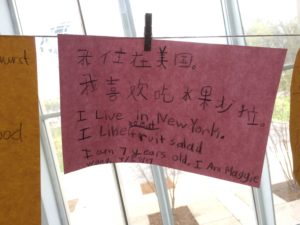 我住在美国。
我喜欢吃水果少拉。
I Live in New York.
I Like fruit salad
I am 7 years old. I Am Maggie